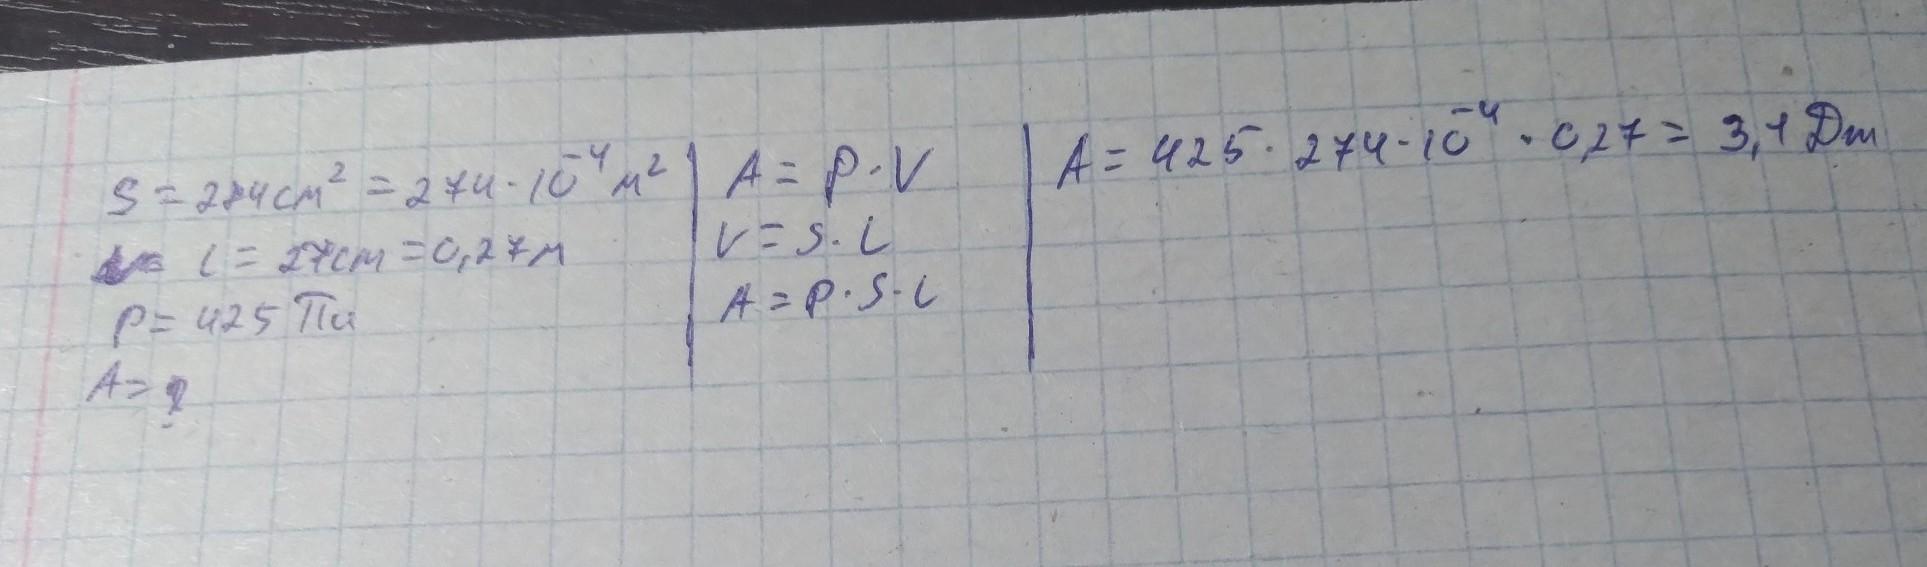 S = 274см² = 274·10⁻⁴м²
l = 27см = 0,27м
P = 425 Па
A = ?
A = P·V
V = S·L
A = P·S·L
A = 425·274·10⁻⁴·0,27 = 3,1 Дж